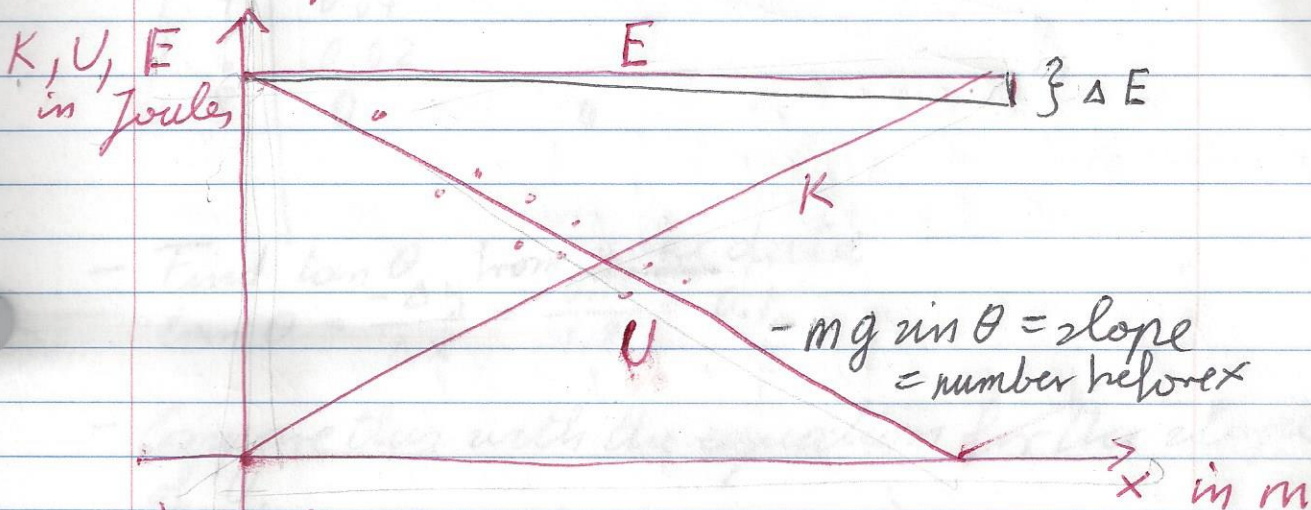 K, U, E
in Joules
E
} Δ E
K
U
- mg sin θ = slope
= number before x
x in m